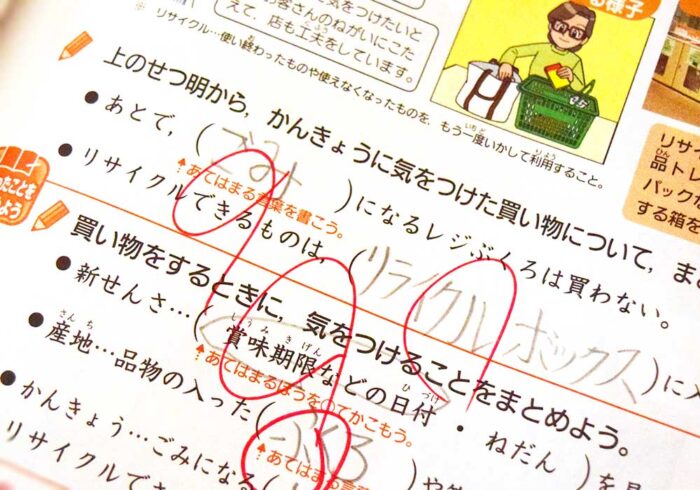 気をつけたいと
お客さんのねがいにこた
えて、店も工夫をしています。
※ リサイクル…使い終わったものや使えなくなったものを、もう一度いかして利用すること。
る様子
上のせつ明から，かんきょうに気をつけた買い物について，ま
●あとで，(ごみ)になるレジぶくろは買わない。
↑あてはまる言葉を書こう。
●リサイクルできるものは，(リライクルボックス)に
買い物をするときに，気をつけることをまとめよう。
●新せんさ…(賞味期限などの日付・ねだん)を
↑あてはまるほうを○でかこもう。
●産地…品物の入った(ふくろ)や
↑あてはまる言
●かんきょう…ごみになる
リサイクルでき
リサイ
品トレ
パックな
する箱を
たことを
よう